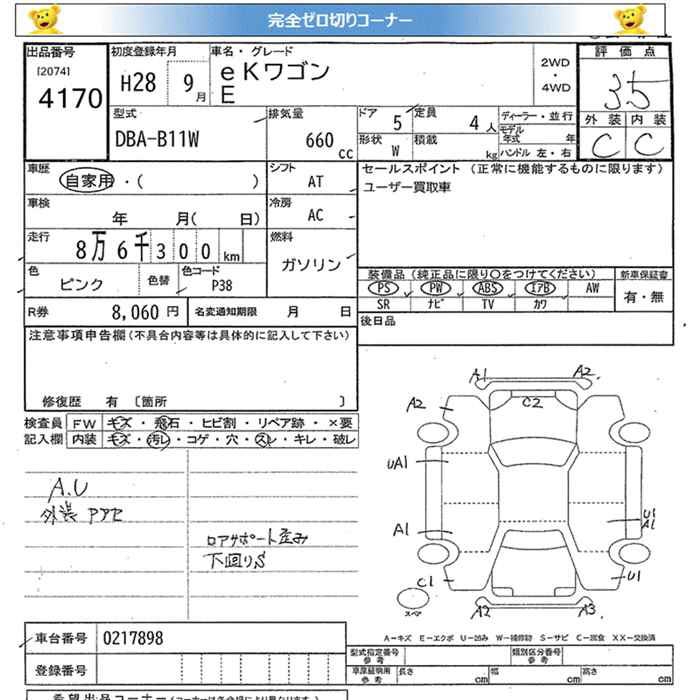 完全ゼロ切りコーナー
出品番号 [2074] 4170
初度登録年月 H28 9月
車名・グレード eKワゴン E
2WD・4WD
評価点 3.5
外装 C 内装 C
型式 DBA-B11W
排気量 660cc
ドア 5
定員 4人
形状 W
積載 kg
ディーラー・並行
モデル年式 年
ハンドル 左・右
車歴 自家用・( )
シフト AT
セールスポイント (正常に機能するものに限ります)
ユーザー買取車
車検 年 月( 日)
冷房 AC
走行 8万6千300km
燃料 ガソリン
色 ピンク
色替
色コード P38
装備品(純正品に限り○をつけてください)
PS PW ABS エアB AW
SR ナビ TV カワ
新車保証書 有・無
R券 8,060円
名変通知期限 月 日
後日品
注意事項申告欄(不具合内容等は具体的に記入して下さい)
修復歴 有 〔箇所 〕
検査員記入欄
FW キズ・飛石・ヒビ割・リペア跡・×要
内装 キズ・汚レ・コゲ・穴・スレ・キレ・破レ
A.U
外装
ロアサポート歪み
下回りS
A1 A2
A2 C2
UA1
A1 U1 A1
C1 U1
スペア A2 A3
A-キズ E-エクボ U-凹み W-補修跡 S-サビ C-腐食 XX-交換済
車台番号 0217898
登録番号
型式指定番号 参考
類別区分番号 参考
車庫証明用 参考 長さ cm 幅 cm 高さ cm
希望出品コーナー